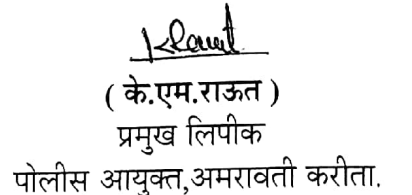 KRaut
( के.एम.राऊत )
प्रमुख लिपीक
पोलीस आयुक्त,अमरावती करीता.